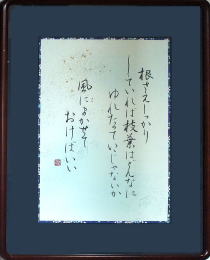 根さえしっかり
していれば枝葉はどんなに
ゆれたっていいじゃないか
風にまかせて
おけばいい